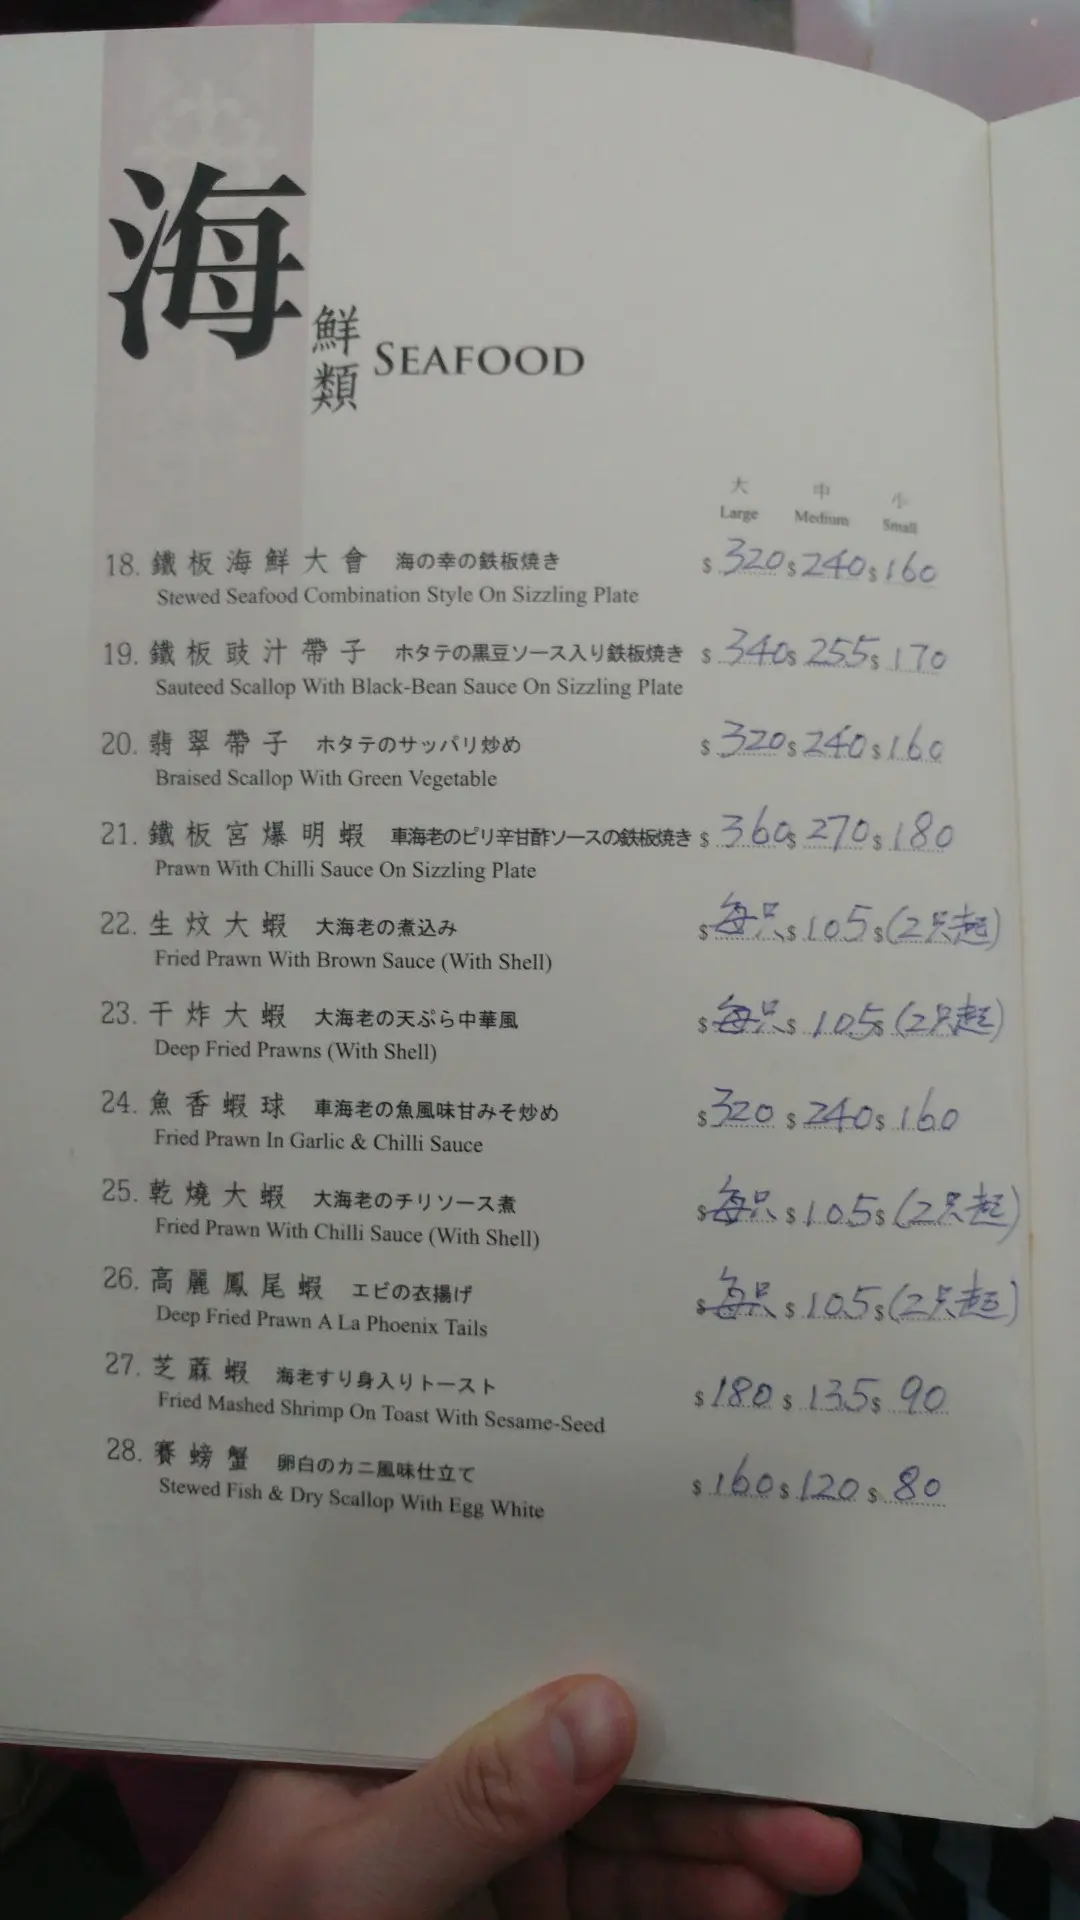 海
鮮類 SEAFOOD
大 中 小
Large Medium Small
18. 鐵板海鮮大會 海の幸の鉄板焼き $ 320 $ 240 $ 160
Stewed Seafood Combination Style On Sizzling Plate
19. 鐵板豉汁帶子 ホタテの黒豆ソース入り鉄板焼き $ 340 $ 255 $ 170
Sauteed Scallop With Black-Bean Sauce On Sizzling Plate
20. 翡翠帶子 ホタテのサッパリ炒め $ 320 $ 240 $ 160
Braised Scallop With Green Vegetable
21. 鐵板宮爆明蝦 車海老のピリ辛甘酢ソースの鉄板焼き $ 360 $ 270 $ 180
Prawn With Chilli Sauce On Sizzling Plate
22. 生炆大蝦 大海老の煮込み $ 每只 $ 105 $ (2只起)
Fried Prawn With Brown Sauce (With Shell)
23. 干炸大蝦 大海老の天ぷら中華風 $ 每只 $ 105 $ (2只起)
Deep Fried Prawns (With Shell)
24. 魚香蝦球 車海老の魚風味甘みそ炒め $ 320 $ 240 $ 160
Fried Prawn In Garlic & Chilli Sauce
25. 乾燒大蝦 大海老のチリソース煮 $ 每只 $ 105 $ (2只起)
Fried Prawn With Chilli Sauce (With Shell)
26. 高麗鳳尾蝦 エビの衣揚げ $ 每只 $ 105 $ (2只起)
Deep Fried Prawn A La Phoenix Tails
27. 芝蔴蝦 海老すり身入りトースト $ 180 $ 135 $ 90
Fried Mashed Shrimp On Toast With Sesame-Seed
28. 賽螃蟹 卵白のカニ風味仕立て $ 160 $ 120 $ 80
Stewed Fish & Dry Scallop With Egg White